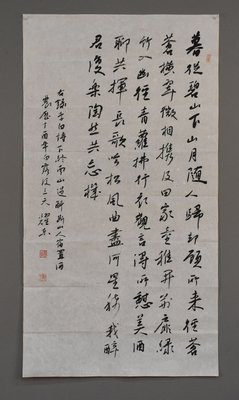 暮從碧山下山月隨人歸却顧所來徑蒼
蒼橫翠微相携及田家童稚開荆扉緑
竹入幽徑青蘿拂行衣歡言得所憩美酒
聊共揮長歌吟松風曲盡河星稀我醉
君復樂陶然共忘機
右録李白詩下終南山過斛斯山人宿置酒
農歷丁酉年白露後三天